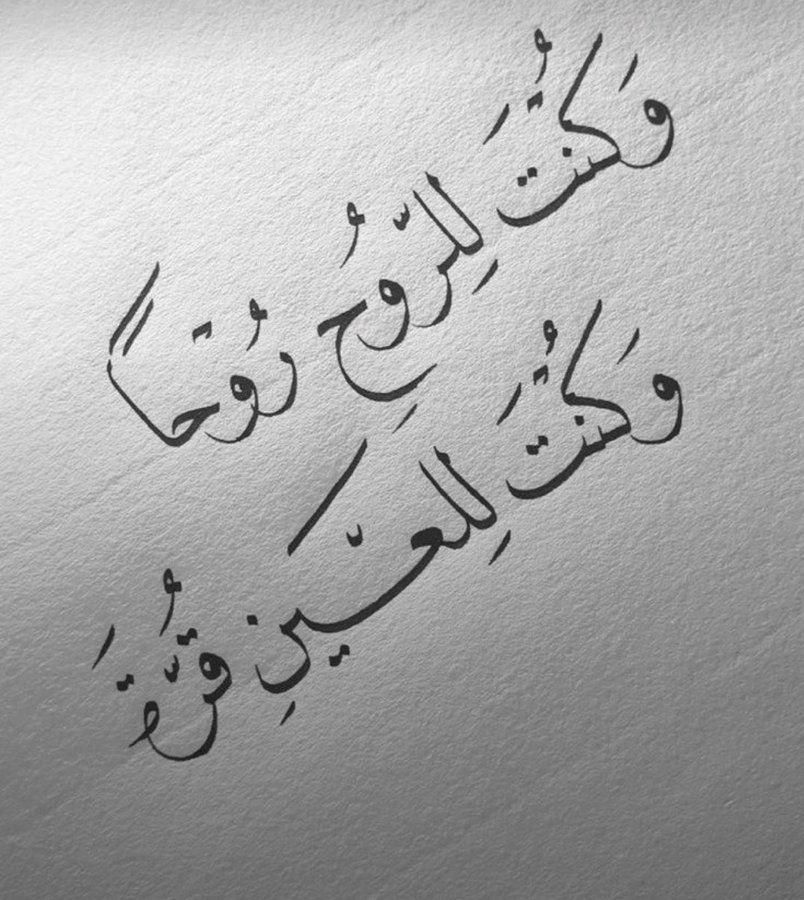 وَكُنْتَ لِلرُّوحِ رُوحاً
وَكُنْتَ لِلعَينِ قُرَّةَ